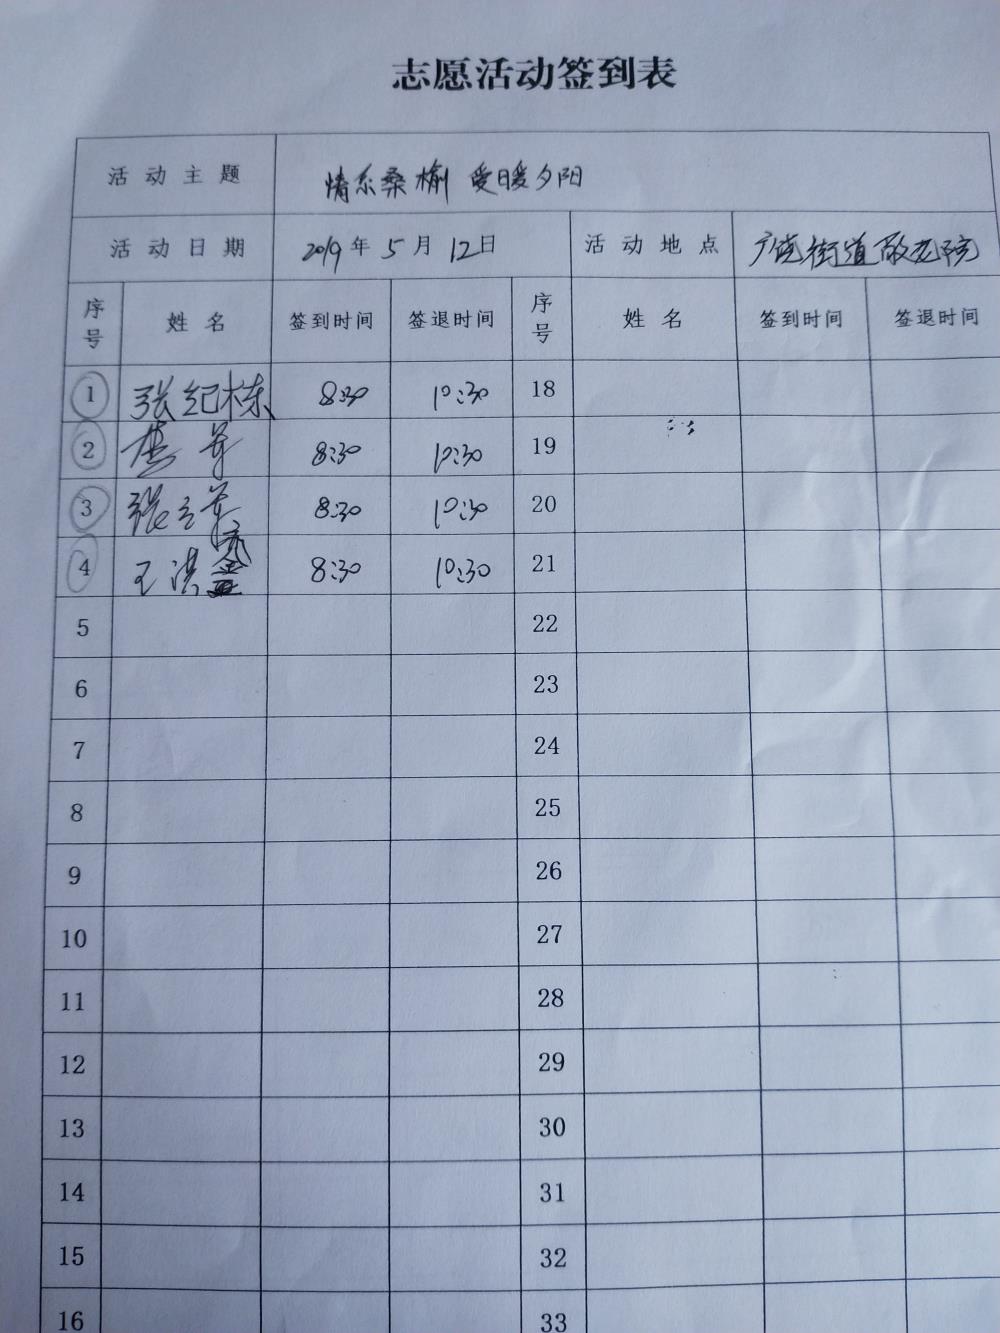 志愿活动签到表
活动主题 情系桑榆 爱暖夕阳
活动日期 2019年5月12日 活动地点 广饶街道敬老院
序号 姓名 签到时间 签退时间 序号 姓名 签到时间 签退时间
1 张纪栋 8:30 10:30 18
2 8:30 10:30 19
3 张立军 8:30 10:30 20
4 王洪 8:30 10:30 21
5 22
6 23
7 24
8 25
9 26
10 27
11 28
12 29
13 30
14 31
15 32
16 33